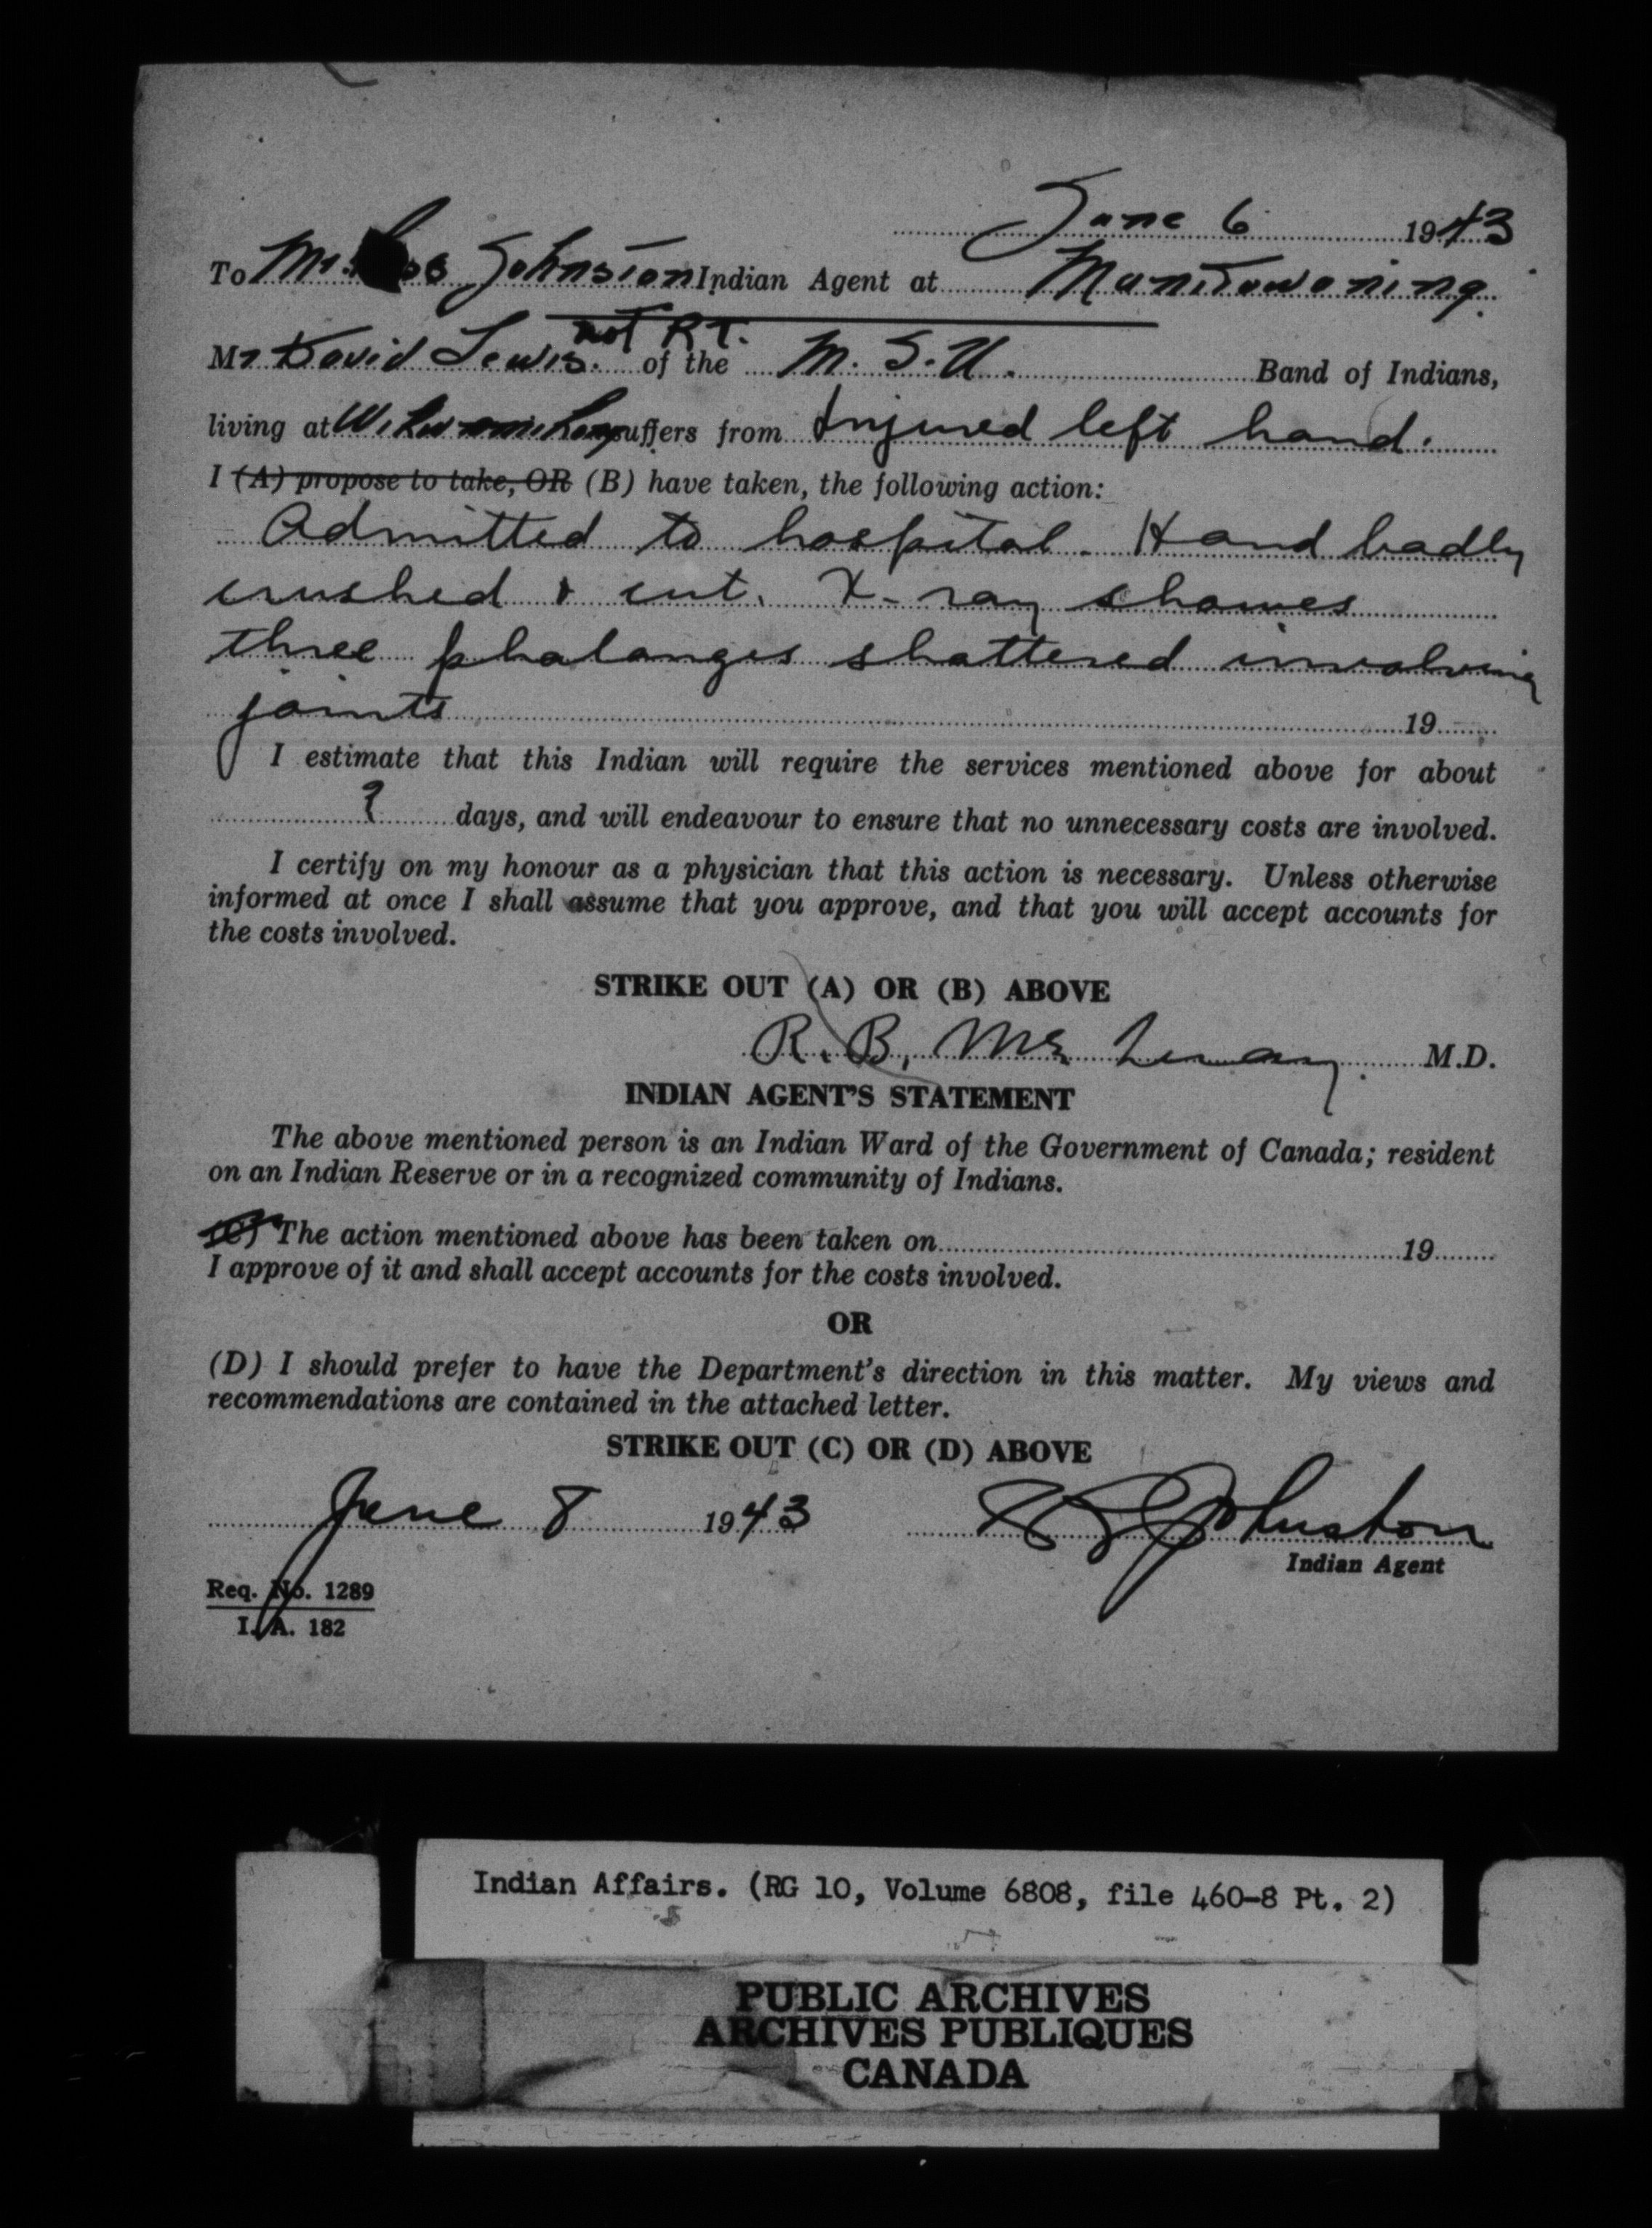 June 6 1943
To Mr. Johnston Indian Agent at Manitowaning.
not RT.
Mr David Lewis. of the M. S. U. Band of Indians,
living at suffers from Injured left hand.
I (A) propose to take, OR (B) have taken, the following action:
Admitted to hospital. Hand badly
crushed & cut. X-ray showes
three phalanges shattered involving
joints 19
I estimate that this Indian will require the services mentioned above for about
? days, and will endeavour to ensure that no unnecessary costs are involved.
I certify on my honour as a physician that this action is necessary. Unless otherwise
informed at once I shall assume that you approve, and that you will accept accounts for
the costs involved.
STRIKE OUT (A) OR (B) ABOVE
R. B. M.D.
INDIAN AGENT'S STATEMENT
The above mentioned person is an Indian Ward of the Government of Canada; resident
on an Indian Reserve or in a recognized community of Indians.
(C) The action mentioned above has been taken on 19
I approve of it and shall accept accounts for the costs involved.
OR
(D) I should prefer to have the Department's direction in this matter. My views and
recommendations are contained in the attached letter.
STRIKE OUT (C) OR (D) ABOVE
June 8 1943 Johnston
Indian Agent
Req. No. 1289
I. A. 182
Indian Affairs. (RG 10, Volume 6808, file 460-8 Pt. 2)
PUBLIC ARCHIVES
ARCHIVES PUBLIQUES
CANADA